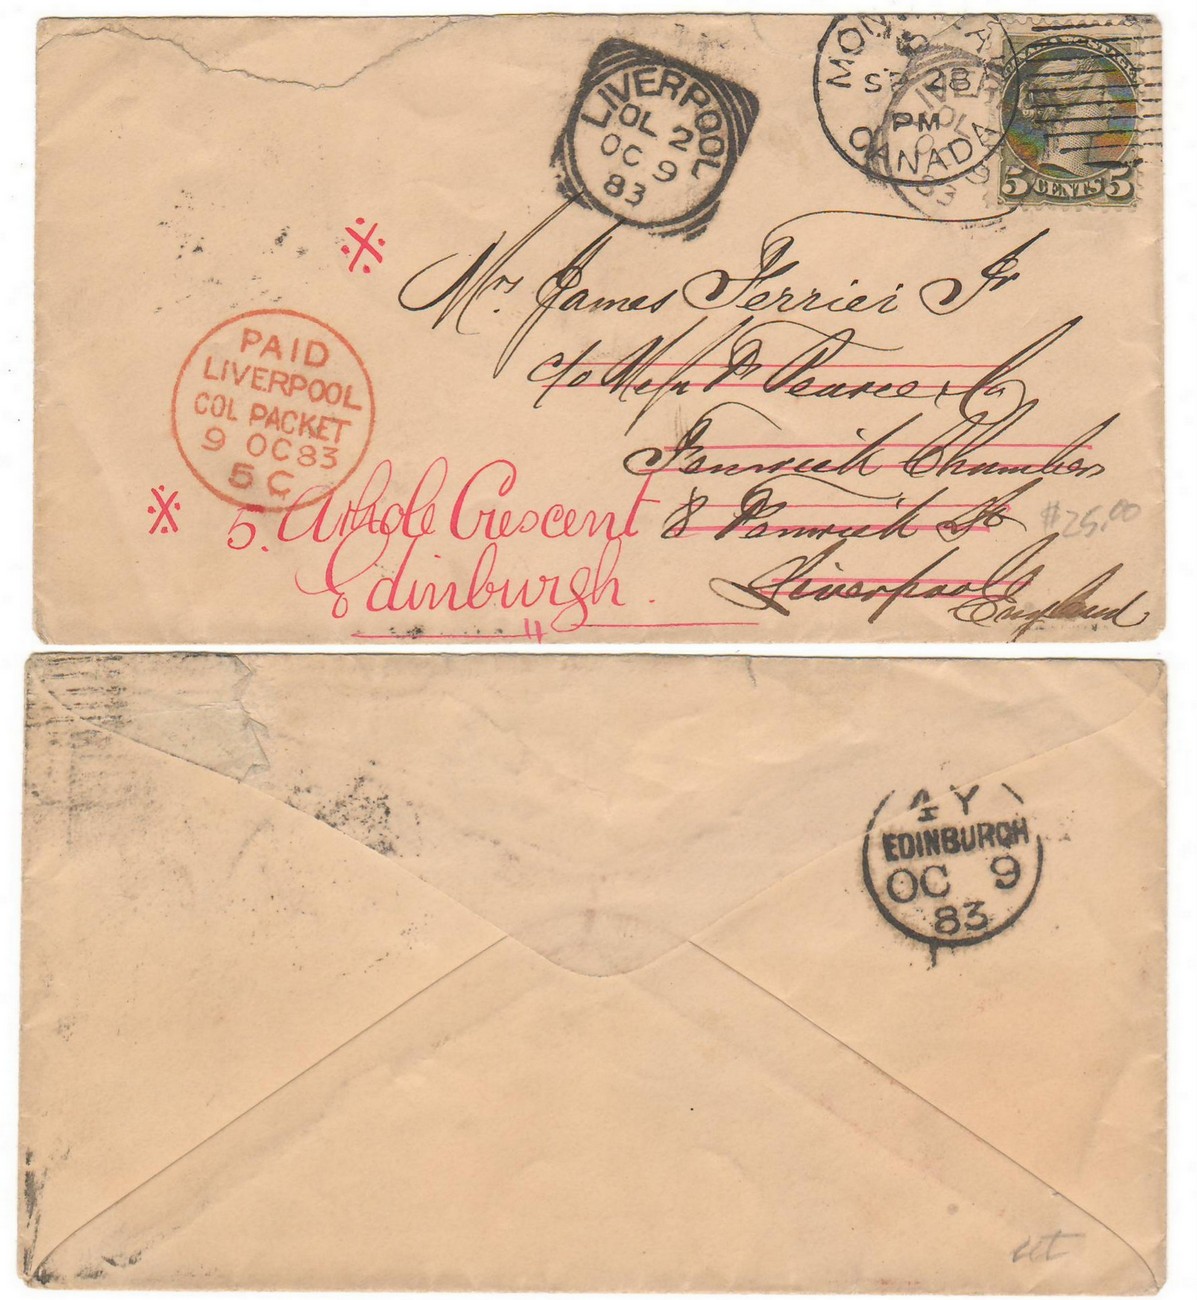 LIVERPOOL
OL 2
OC 9
83
MONTREAL
SP 28
PM
CANADA
LIVERPOOL
OL
9
83
5 CENTS 5
Mr. James Ferrier Jr
c/o Messrs P Pearce & Co
Fenwick Chambers
8 Fenwick St
Liverpool
England
$25.00
PAID
LIVERPOOL
COL PACKET
9 OC 83
5 C
5. Athole Crescent
Edinburgh.
EDINBURGH
OC 9
83